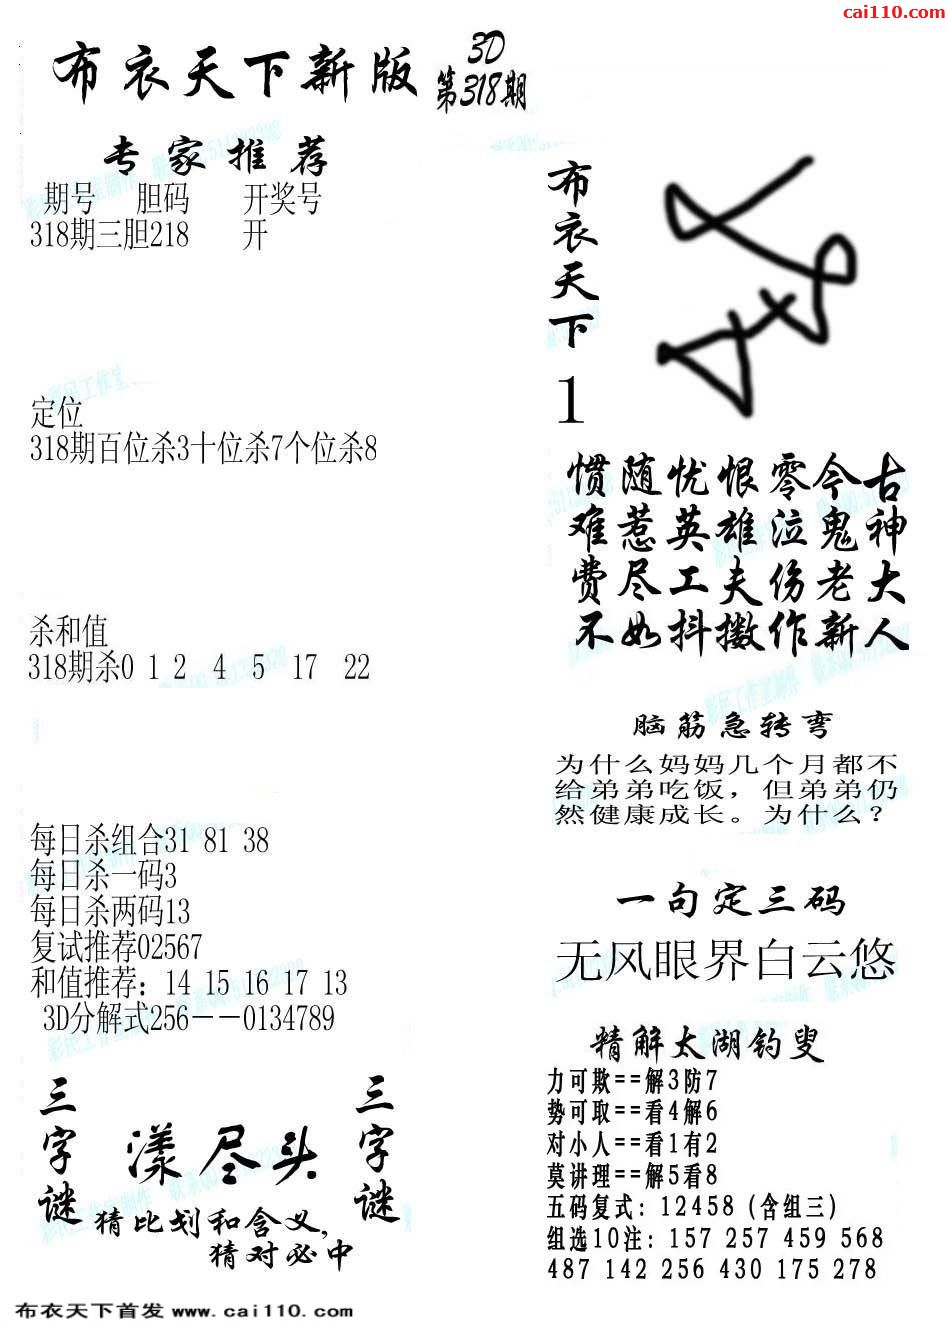 cai110.com
布衣天下新版
3D
第318期
专家推荐
期号 胆码 开奖号
318期三胆218 开
定位
318期百位杀3十位杀7个位杀8
杀和值
318期杀0 1 2 4 5 17 22
每日杀组合31 81 38
每日杀一码3
每日杀两码13
复试推荐02567
和值推荐：14 15 16 17 13
3D分解式256－－0134789
三字谜
漾尽头
三字谜
猜比划和含义，
猜对必中
布衣天下首发 www.cai110.com
布衣天下
1
惯随忧恨零今古
难惹英雄泣鬼神
费尽工夫伤老大
不如抖擞作新人
脑筋急转弯
为什么妈妈几个月都不
给弟弟吃饭，但弟弟仍
然健康成长。为什么？
一句定三码
无风眼界白云悠
精解太湖钓叟
力可欺==解3防7
势可取==看4解6
对小人==看1有2
莫讲理==解5看8
五码复式：12458（含组三）
组选10注：157 257 459 568
487 142 256 430 175 278